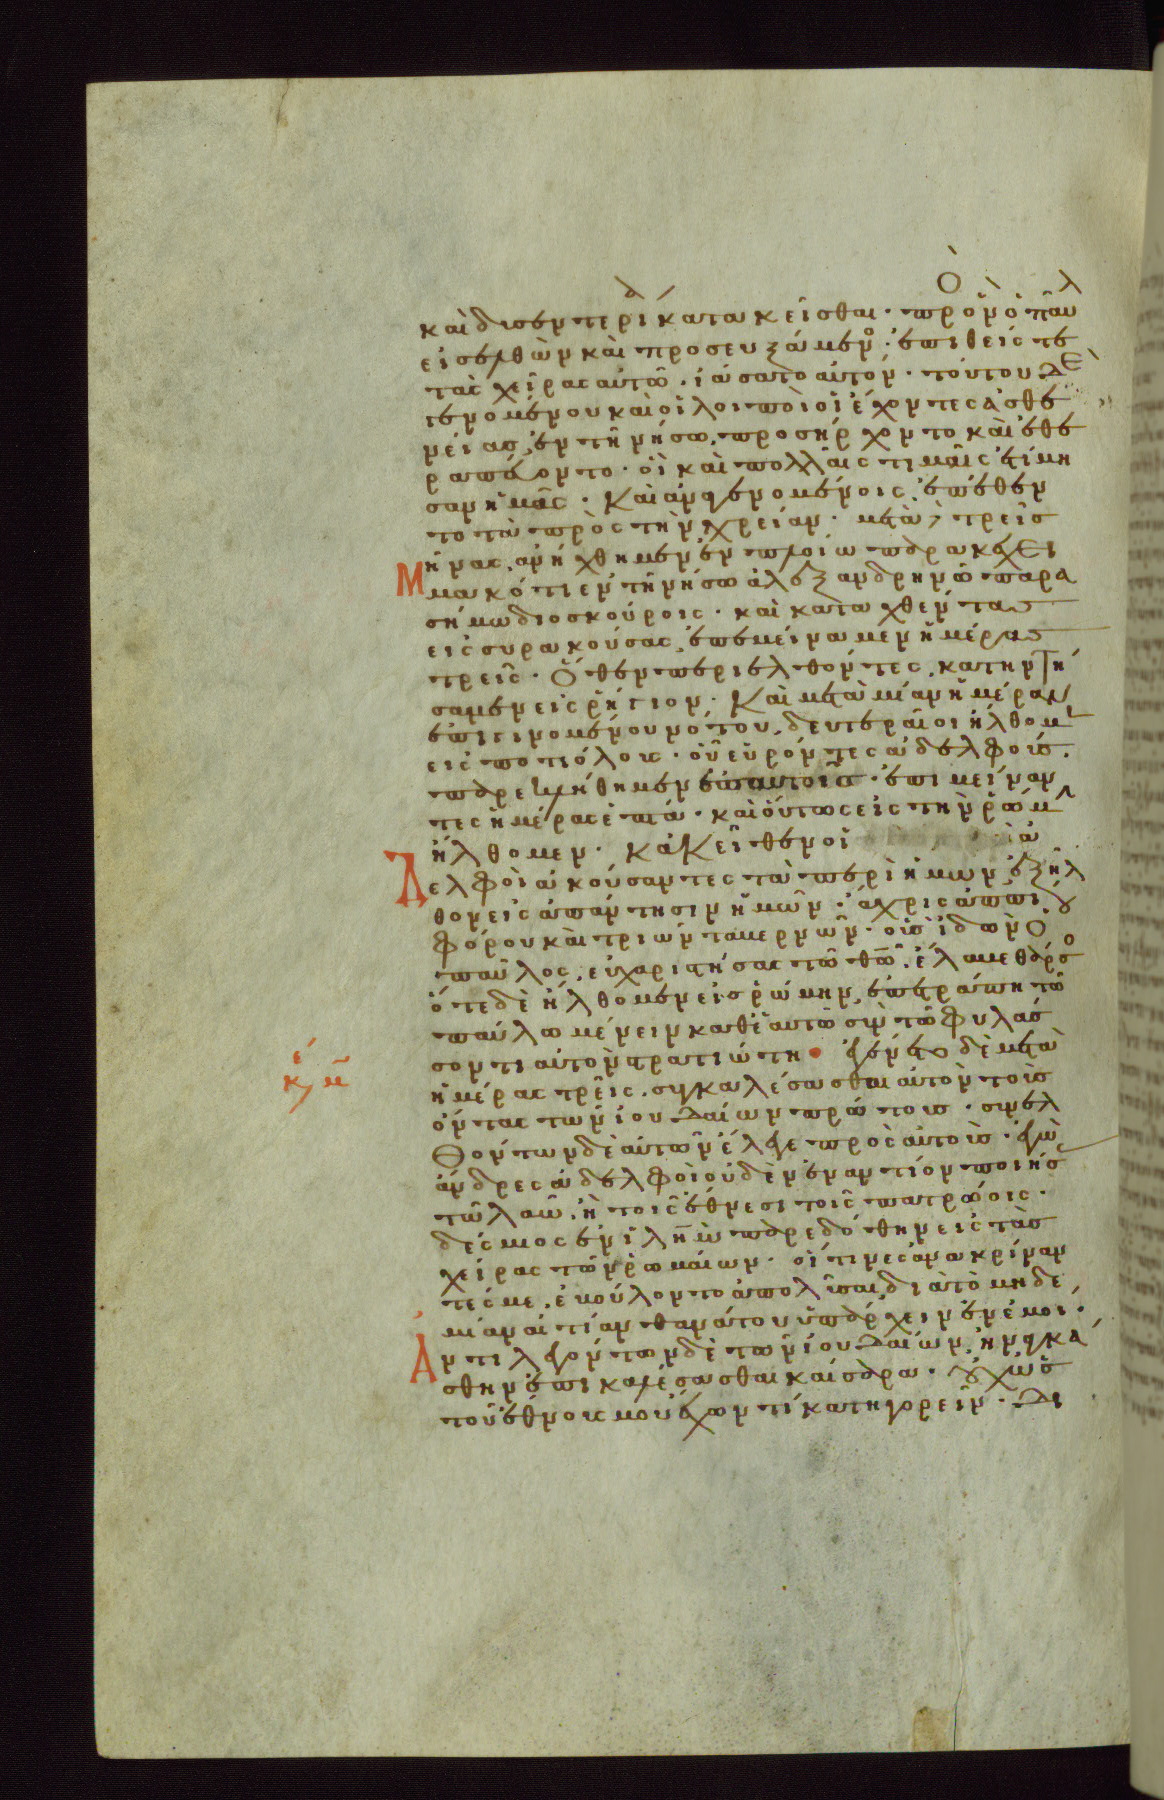 καὶ δισεντερία κατακεῖσθαι · πρὸς ὃν ὁ παῦλ
εἰσελθὼν καὶ προσευξάμενος · ἐπιθείς τε
τὰς χεῖρας αὐτῶ · ἰάσατο αὐτόν · τούτου δὲ
γενομένου καὶ οἱ λοιποὶ οἱ ἔχοντες ἀσθε
νείας ἐν τῆ νήσω, προσήρχοντο καὶ ἐθε
ραπεύοντο · οἳ καὶ πολλαῖς τιμαῖς ἐτίμη
σαν ἡμᾶς · Καὶ ἀναγενομένοις ἐπέθεν
το τὰ πρὸς τὴν χρείαν · μετὰ δὲ τρεῖς
μῆνας, ἀνήχθημεν ἐν πλοίω παρακεχει
μακότι ἐν τῆ νήσω ἀλεξανδρηνῶ παρα
σήμω διοσκούροις · καὶ καταχθέντας
εἰς συρακούσας, ἐπεμείναμεν ἡμέρας
τρεῖς · Ὅθεν περιελθόντες, κατηντή
σαμεν εἰς ῥήγιον · Καὶ μετὰ μίαν ἡμέραν
ἐπιγινομένου νότου, δευτεραῖοι ἤλθομεν
εἰς ποτιόλους · οὗ εὑρόντες ἀδελφοὺς ·
παρεκλήθημεν ἐπ αυτοῖς · ἐπιμείναν
τες ἡμέρας ἑπτά · καὶ οὕτως εἰς τὴν ῥώμην
ἤλθομεν · κἀκεῖθεν οἱ ἀ
δελφοὶ ἀκούσαντες τὰ περὶ ἡμων ἐξῆλ
θον εἰς ἀπάντησιν ἡμῶν · ἄχρις ἀππίου
φόρου καὶ τριῶν ταμερνῶν · οὓς ἰδὼν ὁ
παῦλος, εὐχαριστήσας τῶ θῶ, ἔλαμε θάρσος
ὅτε δὲ ἤλθομεν εἰς ῥώμην, ἐπετράπη τῶ
παύλω μένειν καθ ἑαυτὸν σὺν τῶ φυλάσ
σοντι αὐτὸν στρατιώτη · ἐγένετο δὲ μετὰ
ἡμέρας τρεῖς, συγκαλέσασθαι αὐτὸν τοὺς
ὄντας τῶν ἰουδαίων πρώτους · συνελ
θόντων δὲ αὐτῶν ἔλεγε πρὸς αὐτούς · ἐγὼ
ἄνδρες ἀδελφοὶ οὐδὲν ἐναντίον ποιήσας
τῶ λαῶ, ἢ τοῖς ἔθνεσι τοῖς πατρώοις ·
δέσμιος ἐξ ἱλημ παρεδόθην εἰς τὰς
χεῖρας τῶν ῥωμαίων · οἵτινες ἀνακρίναν
τές με, ἐμούλοντο ἀπολῦσαι διὰ τὸ μηδε
μίαν αἰτίαν θανάτου ὑπάρχειν ἐν ἐμοί ·
Ἀντιλεγόντων δὲ τῶν ἰουδαίων, ἠναγκά
σθην ἐπικαλέσασθαι καίσαρα · οὐχ ὡς
τοῦ ἔθνους μου ἔχων τί κατηγορεῖν · Δι